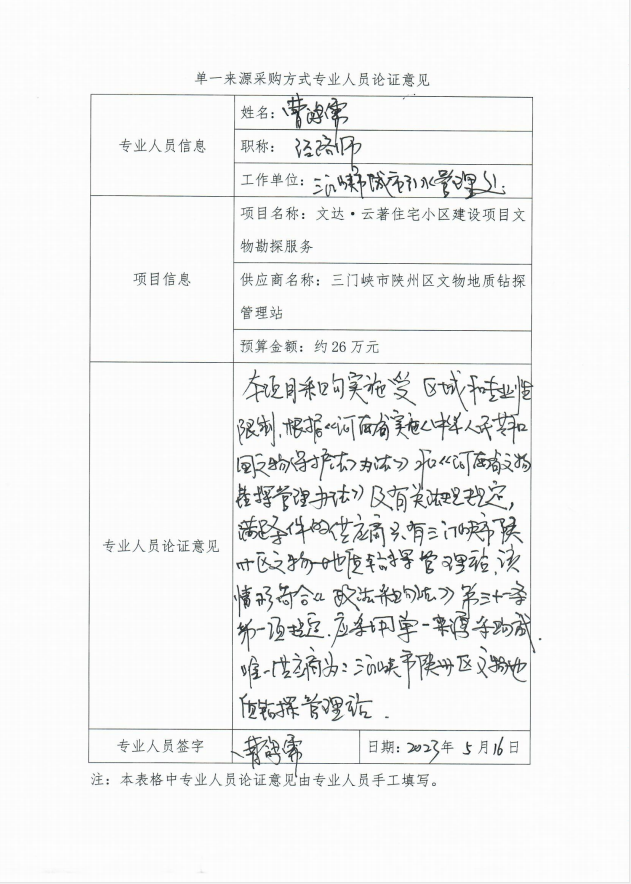 单一来源采购方式专业人员论证意见
专业人员信息
姓名：曹鸿儒
职称：经济师
工作单位：三门峡市城市引水管理处
项目信息
项目名称：文达·云著住宅小区建设项目文
物勘探服务
供应商名称：三门峡市陕州区文物地质钻探
管理站
预算金额：约26万元
专业人员论证意见
本项目采购实施受区域和专业性
限制，根据《河南省实施〈中华人民共和
国文物保护法〉办法》和《河南省文物
钻探管理办法》及有关法规规定，
满足条件的供应商只有三门峡市陕
州区文物地质钻探管理站，该
情形符合《政府采购法》第三十一条
第一项规定，应采用单一来源采购方式，
唯一供应商为：三门峡市陕州区文物地
质钻探管理站．
专业人员签字
曹鸿儒
日期：2023年5月16日
注：本表格中专业人员论证意见由专业人员手工填写。